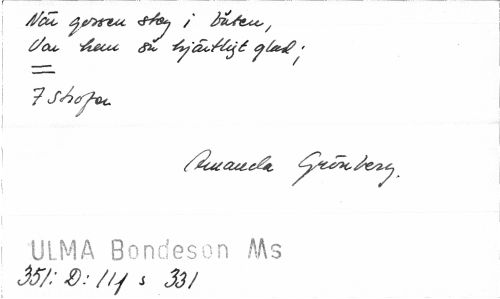 När gossen steg i båten,
Var han så hjärtligt glad;
=
7 strofer
Amanda Grönberg.
ULMA Bondeson Ms
351: D: 114 s 331